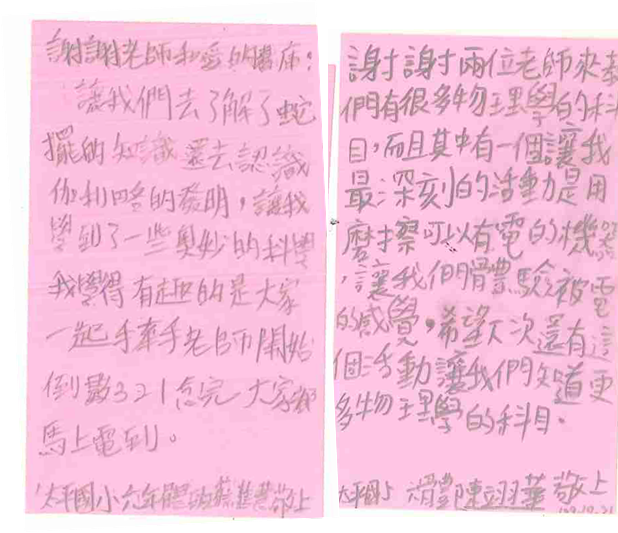 謝謝老師和愛的
讓我們去了解了蛇
擺的知識還去認識
伽利略的發明，讓我
學到了一些奧妙的科學
我覺得有趣的是大家
一起手牽手老師開始
倒數321念完大家都
馬上電到。
太平國小六年 敬上
謝謝兩位老師來
們有很多物理學的科
目，而且其中有一個讓我
最深刻的活動是用
磨擦可以有電的機器
，讓我們體驗被電
的感覺，希望下次還有這
個活動讓我們知道更
多物理學的科目。
太平國小 陳翊華敬上